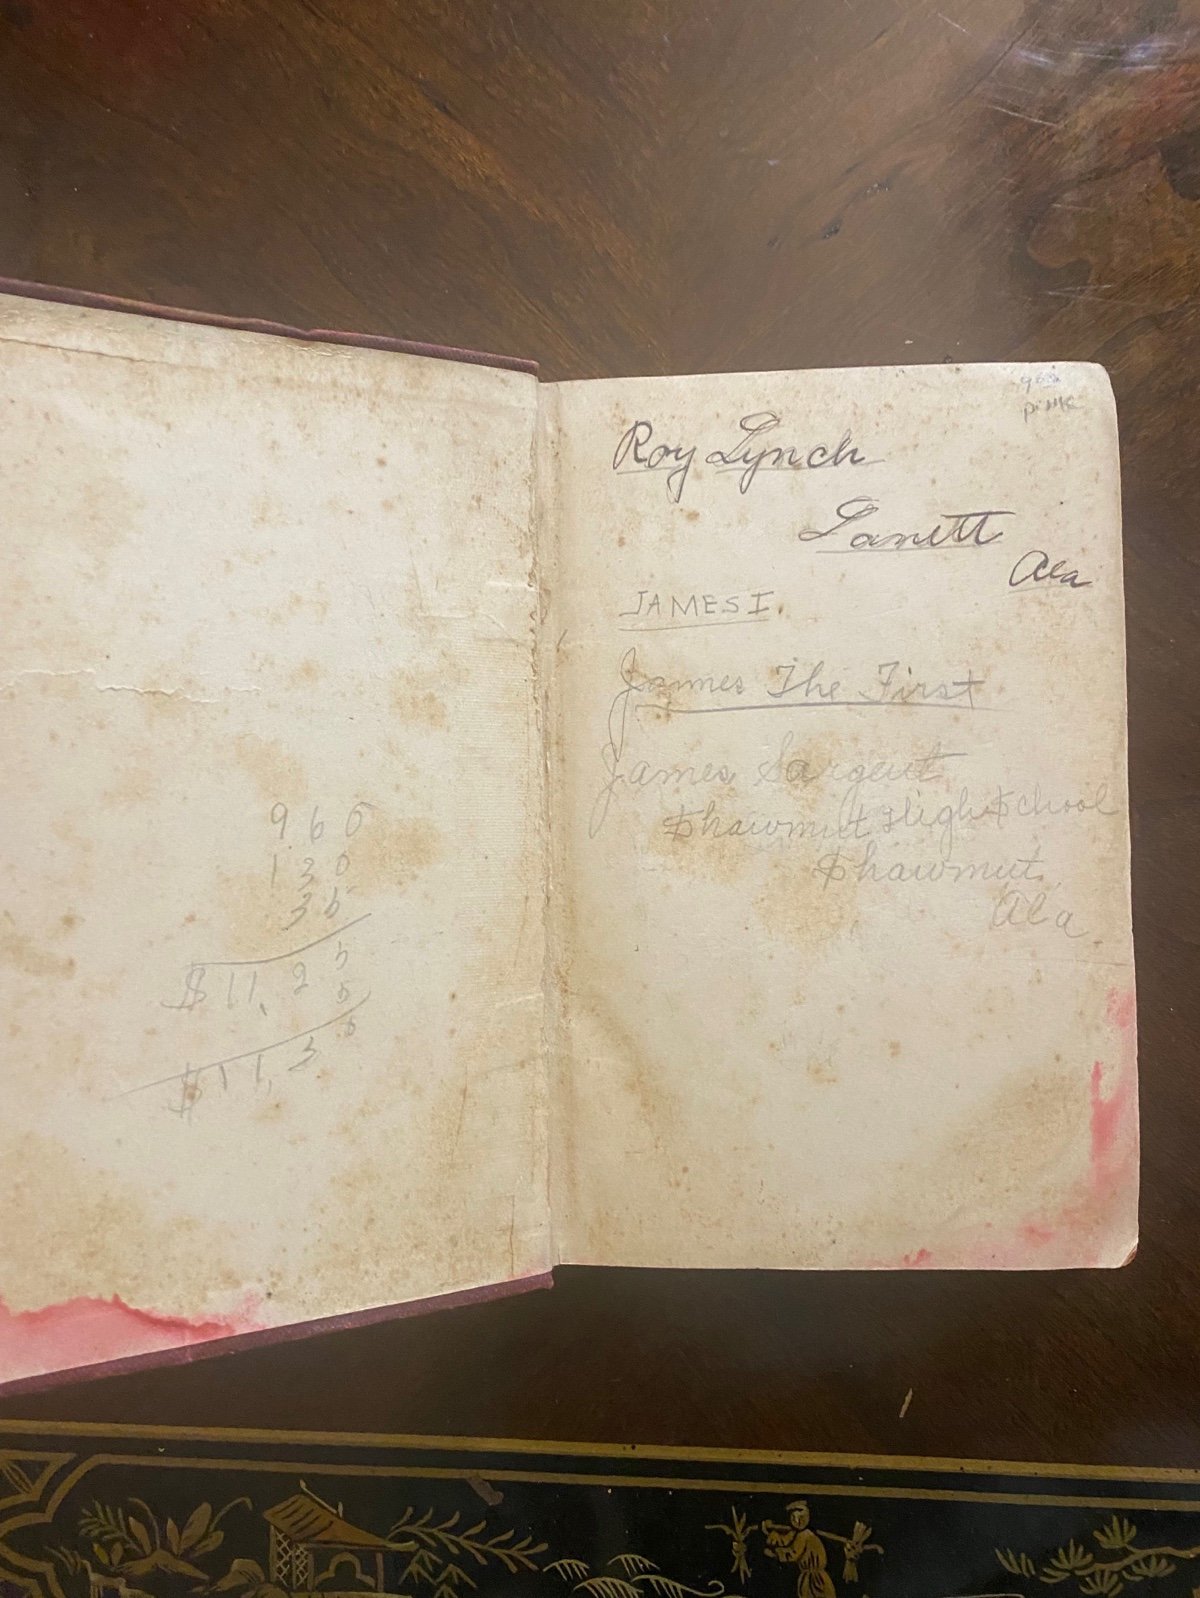 9 6 0
1 3 0
3 5
$ 11, 2 5
5
$ 11, 3
pink
Roy Lynch
Lanett
Ala
JAMES I.
James The First
James Sargent
Shawmut High School
Shawmut,
Ala